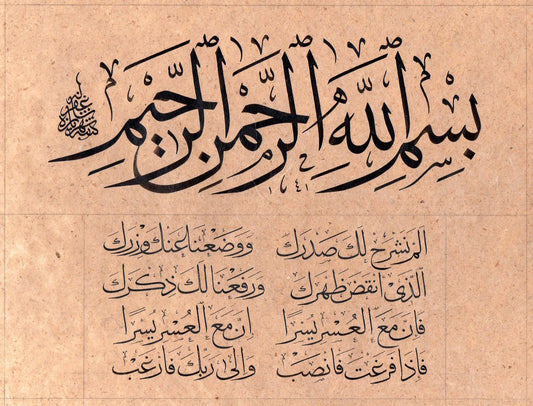 بِسْمِ ٱللَّهِ ٱلرَّحْمَٰنِ ٱلرَّحِيمِ
الم نشرح لك صدرك ووضعنا عنك وزرك
الذى انقض ظهرك ورفعنا لك ذكرك
فان مع العسر يسرا ان مع العسر يسرا
فاذا فرغت فانصب والى ربك فارغب